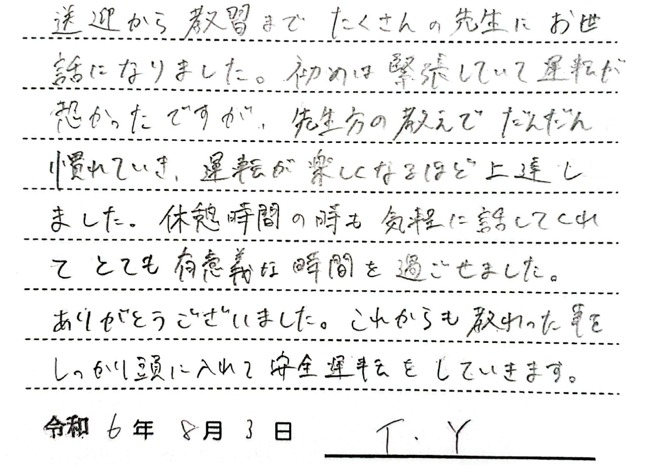 送迎から教習まで たくさんの先生に お世
話になりました。初めは緊張していて運転が
怖かったですが、先生方の教えで だんだん
慣れていき、運転が楽しくなるほど上達し
ました。休憩時間の時も気軽に話してくれ
て とても有意義な時間を過ごせました。
ありがとうございました。これからも教わった事を
しっかり頭に入れて安全運転をしていきます。
令和 6 年 8 月 3 日 T.Y